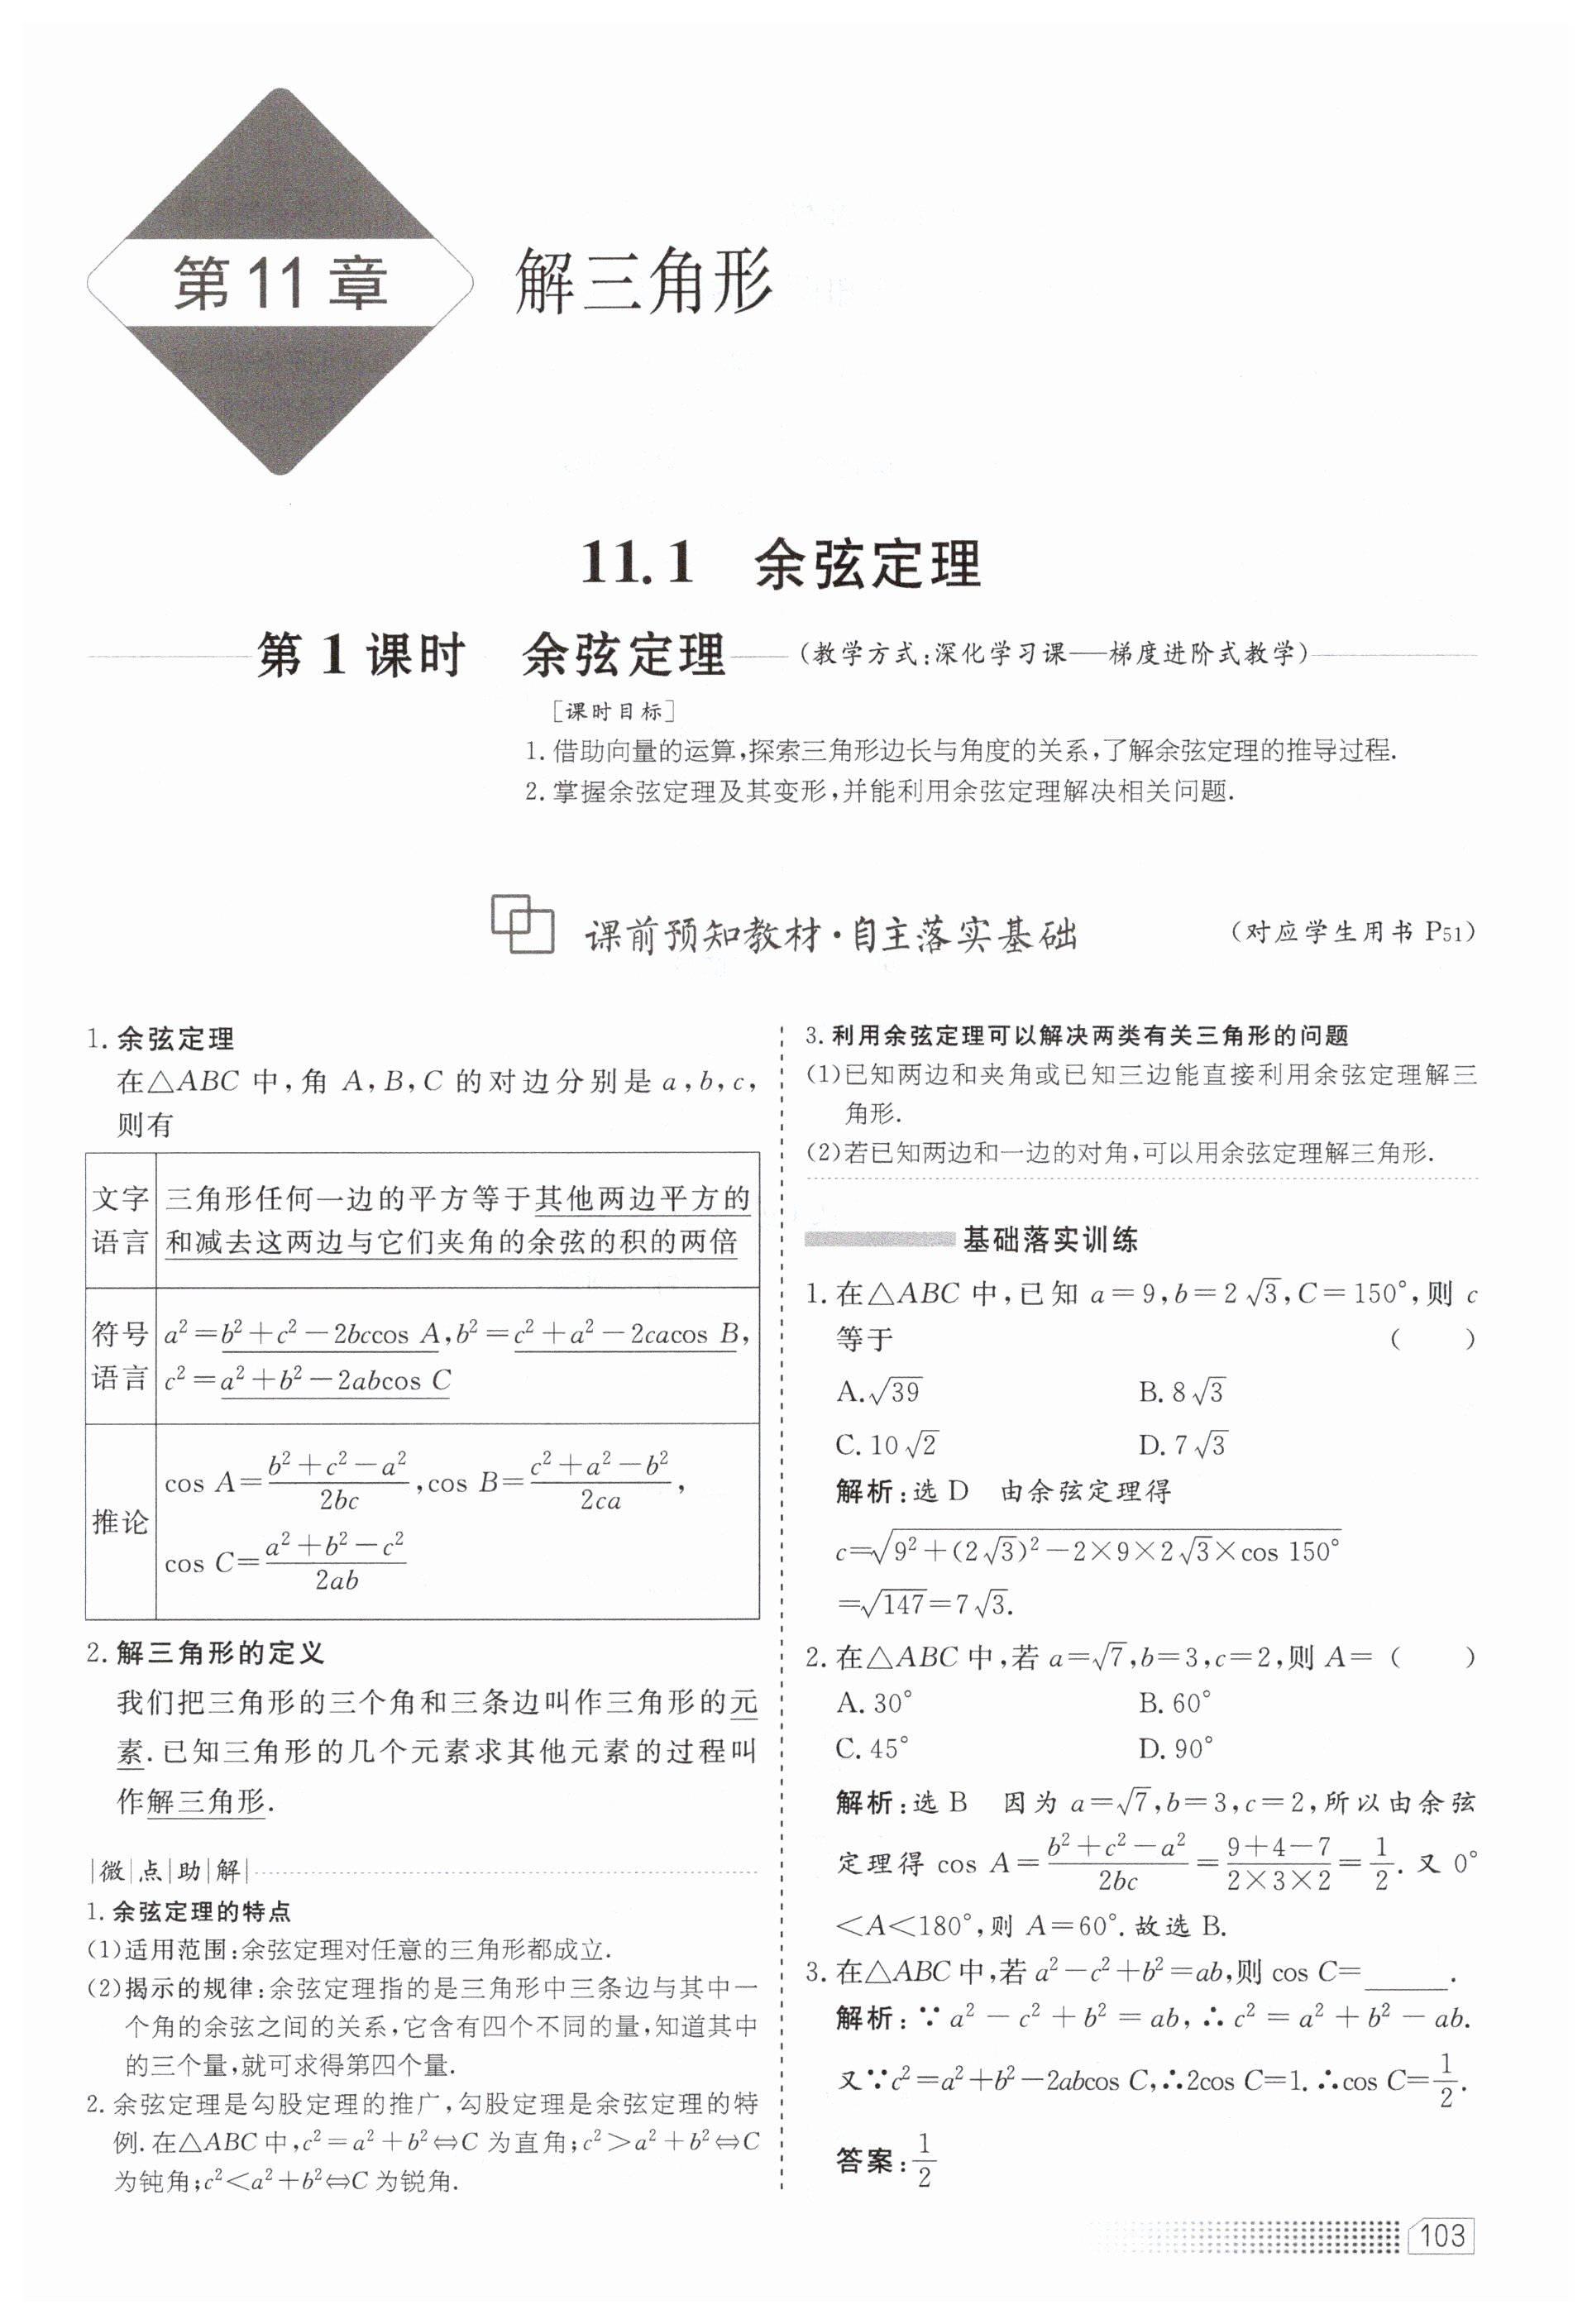 第11章
解三角形
11.1 余弦定理
第1课时 余弦定理 (教学方式:深化学习课——梯度进阶式教学)
[课时目标]
1. 借助向量的运算,探索三角形边长与角度的关系,了解余弦定理的推导过程.
2. 掌握余弦定理及其变形,并能利用余弦定理解决相关问题.
课前预知教材·自主落实基础 (对应学生用书 P51)
1. 余弦定理
在△ABC 中,角 A,B,C 的对边分别是 a,b,c,
则有
文字语言
三角形任何一边的平方等于其他两边平方的
和减去这两边与它们夹角的余弦的积的两倍
符号语言
a²=b²+c²-2bccos A,b²=c²+a²-2cacos B,
c²=a²+b²-2abcos C
推论
cos A=(b²+c²-a²)/(2bc),cos B=(c²+a²-b²)/(2ca),
cos C=(a²+b²-c²)/(2ab)
2. 解三角形的定义
我们把三角形的三个角和三条边叫作三角形的元
素.已知三角形的几个元素求其他元素的过程叫
作解三角形.
|微|点|助|解|
1. 余弦定理的特点
(1)适用范围:余弦定理对任意的三角形都成立.
(2)揭示的规律:余弦定理指的是三角形中三条边与其中一
个角的余弦之间的关系,它含有四个不同的量,知道其中
的三个量,就可求得第四个量.
2. 余弦定理是勾股定理的推广,勾股定理是余弦定理的特
例.在△ABC 中,c²=a²+b²⇔C 为直角;c²>a²+b²⇔C
为钝角;c²<a²+b²⇔C 为锐角.
3. 利用余弦定理可以解决两类有关三角形的问题
(1)已知两边和夹角或已知三边能直接利用余弦定理解三
角形.
(2)若已知两边和一边的对角,可以用余弦定理解三角形.
基础落实训练
1. 在△ABC 中,已知 a=9,b=2√3,C=150°,则 c
等于 ( )
A.√39 B. 8√3
C. 10√2 D. 7√3
解析:选 D 由余弦定理得
c=√(9²+(2√3)²-2×9×2√3×cos 150°)
=√147=7√3.
2. 在△ABC 中,若 a=√7,b=3,c=2,则 A= ( )
A. 30° B. 60°
C. 45° D. 90°
解析:选 B 因为 a=√7,b=3,c=2,所以由余弦
定理得 cos A=(b²+c²-a²)/(2bc)=(9+4-7)/(2×3×2)=1/2. 又 0°
<A<180°,则 A=60°.故选 B.
3. 在△ABC 中,若 a²-c²+b²=ab,则 cos C=______.
解析:∵a²-c²+b²=ab,∴c²=a²+b²-ab.
又∵c²=a²+b²-2abcos C,∴2cos C=1. ∴cos C=1/2.
答案:1/2
103